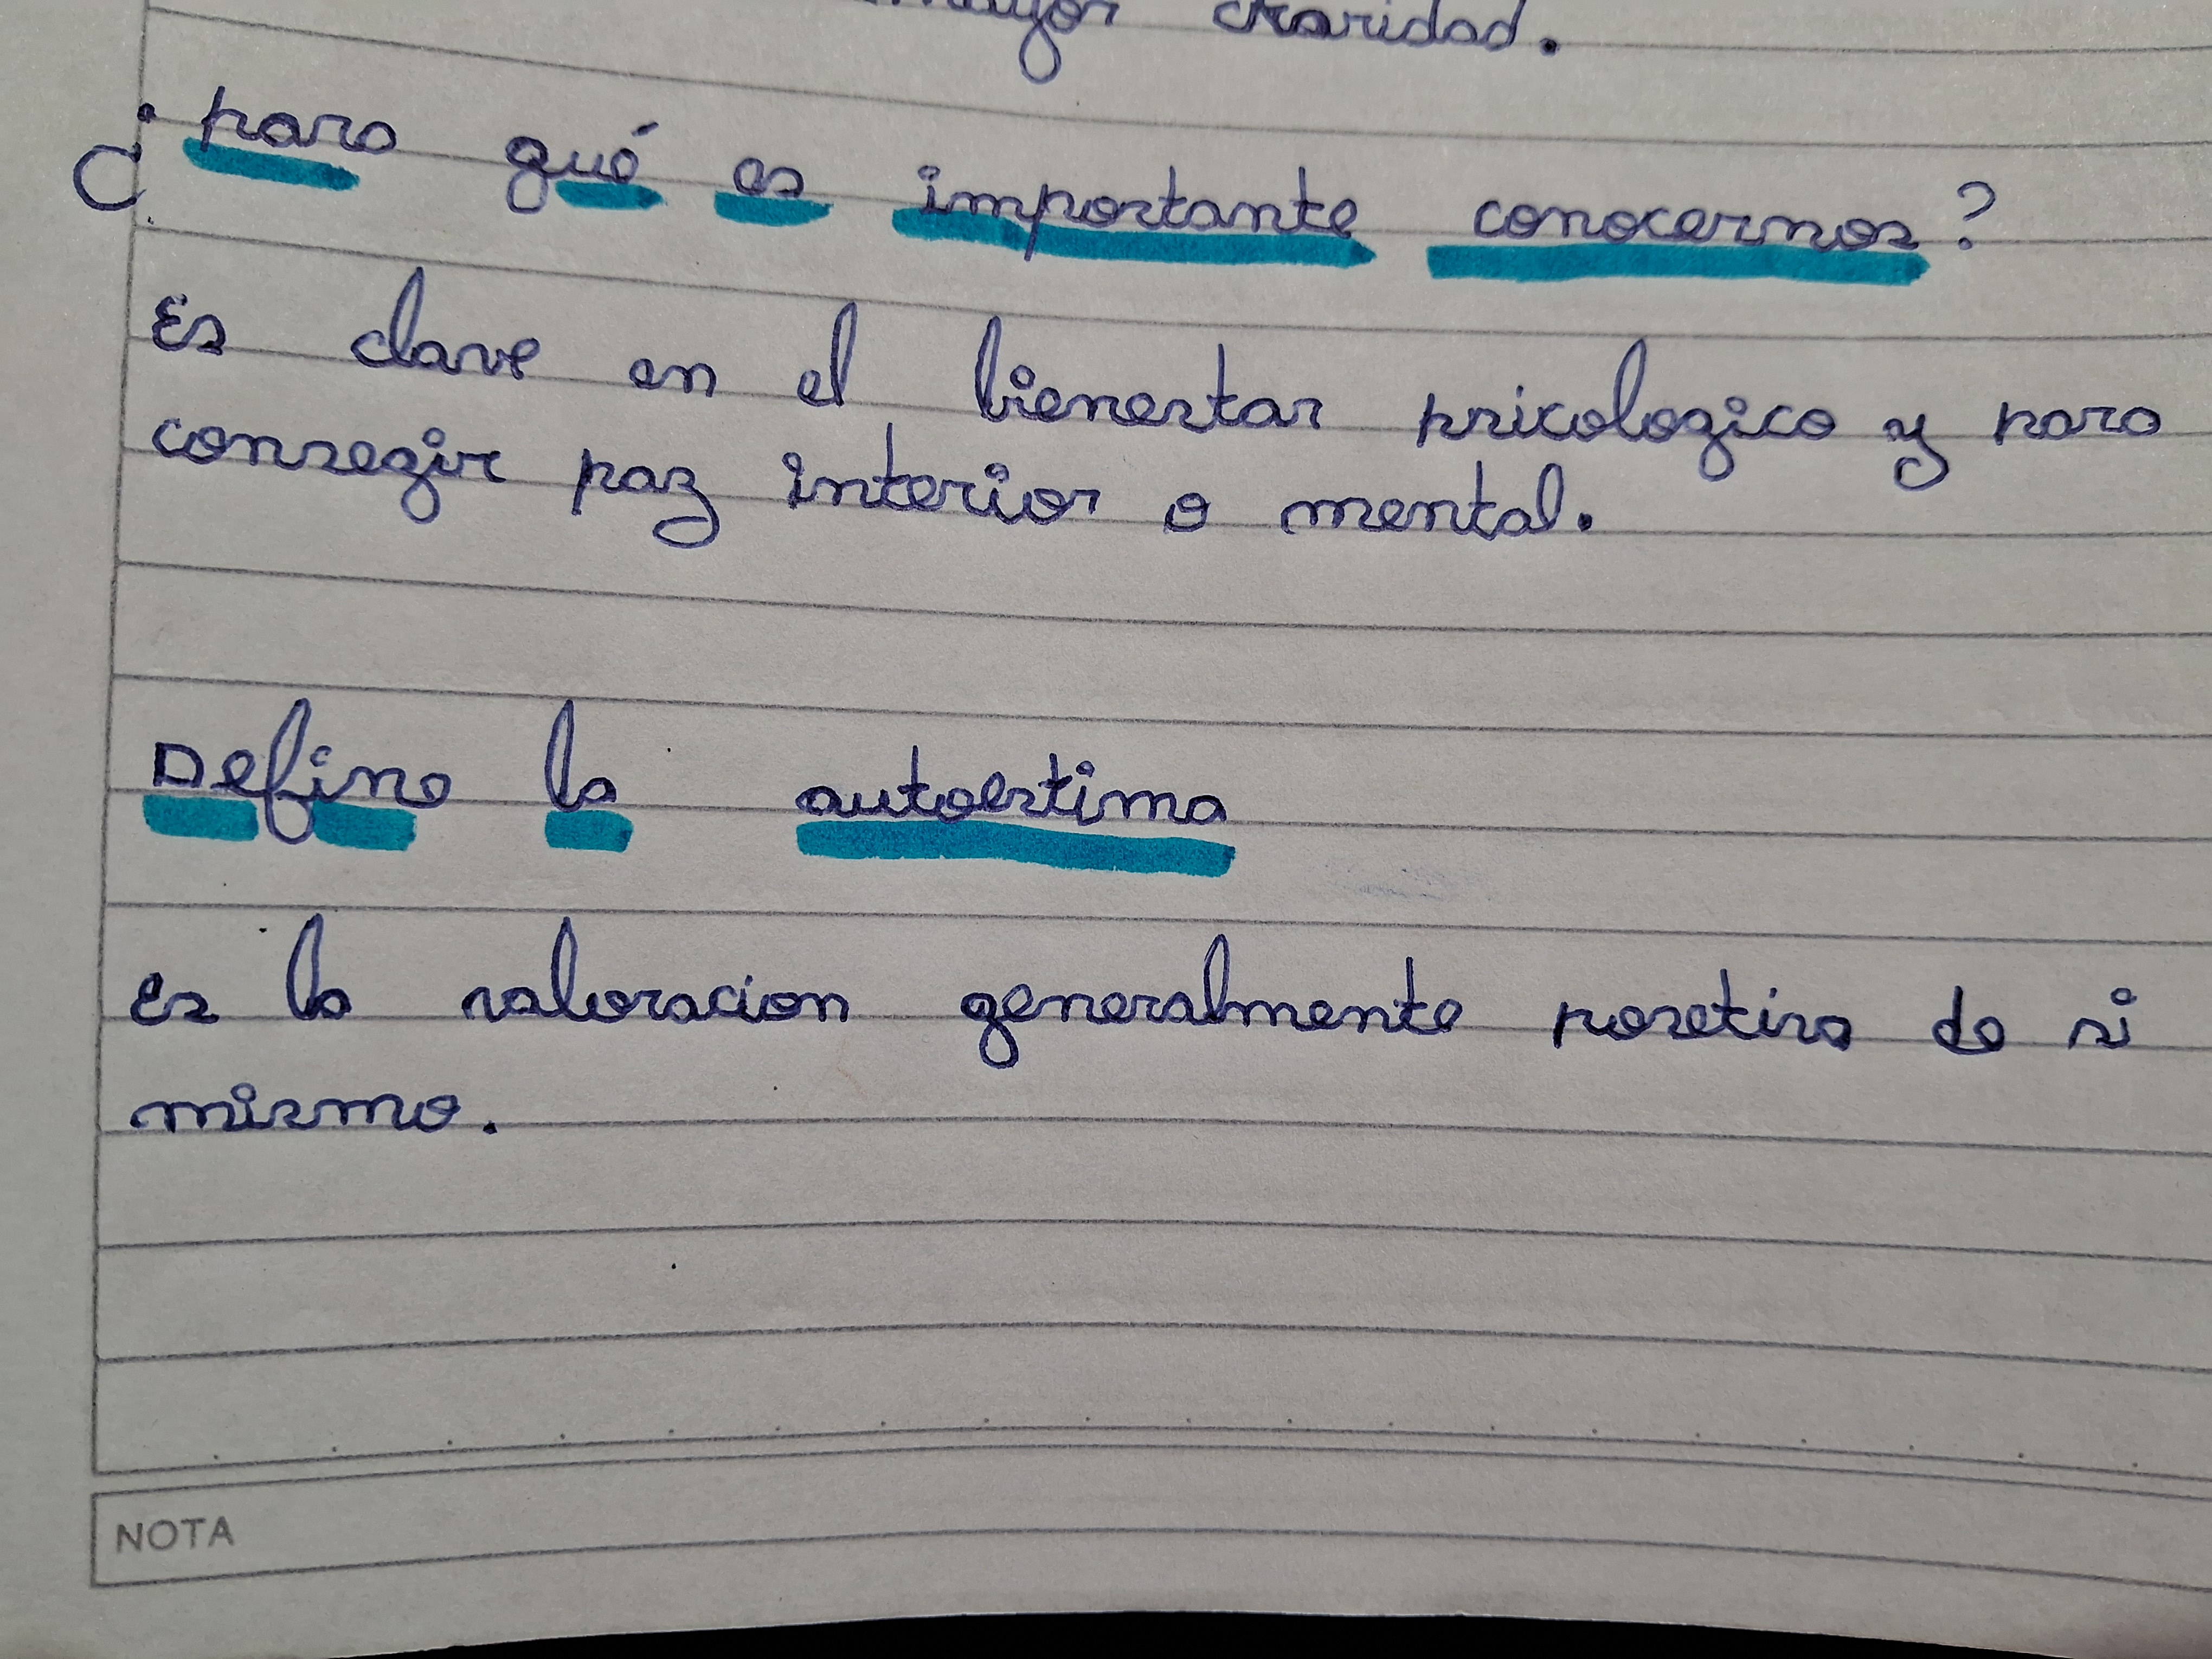 mayor claridad.
¿para qué es importante conocernos?
Es clave en el bienestar psicologico y para
consegir paz interior o mental.
Define la autoestima
Es la valoracion generalmente posetiva de si
mismo.
NOTA